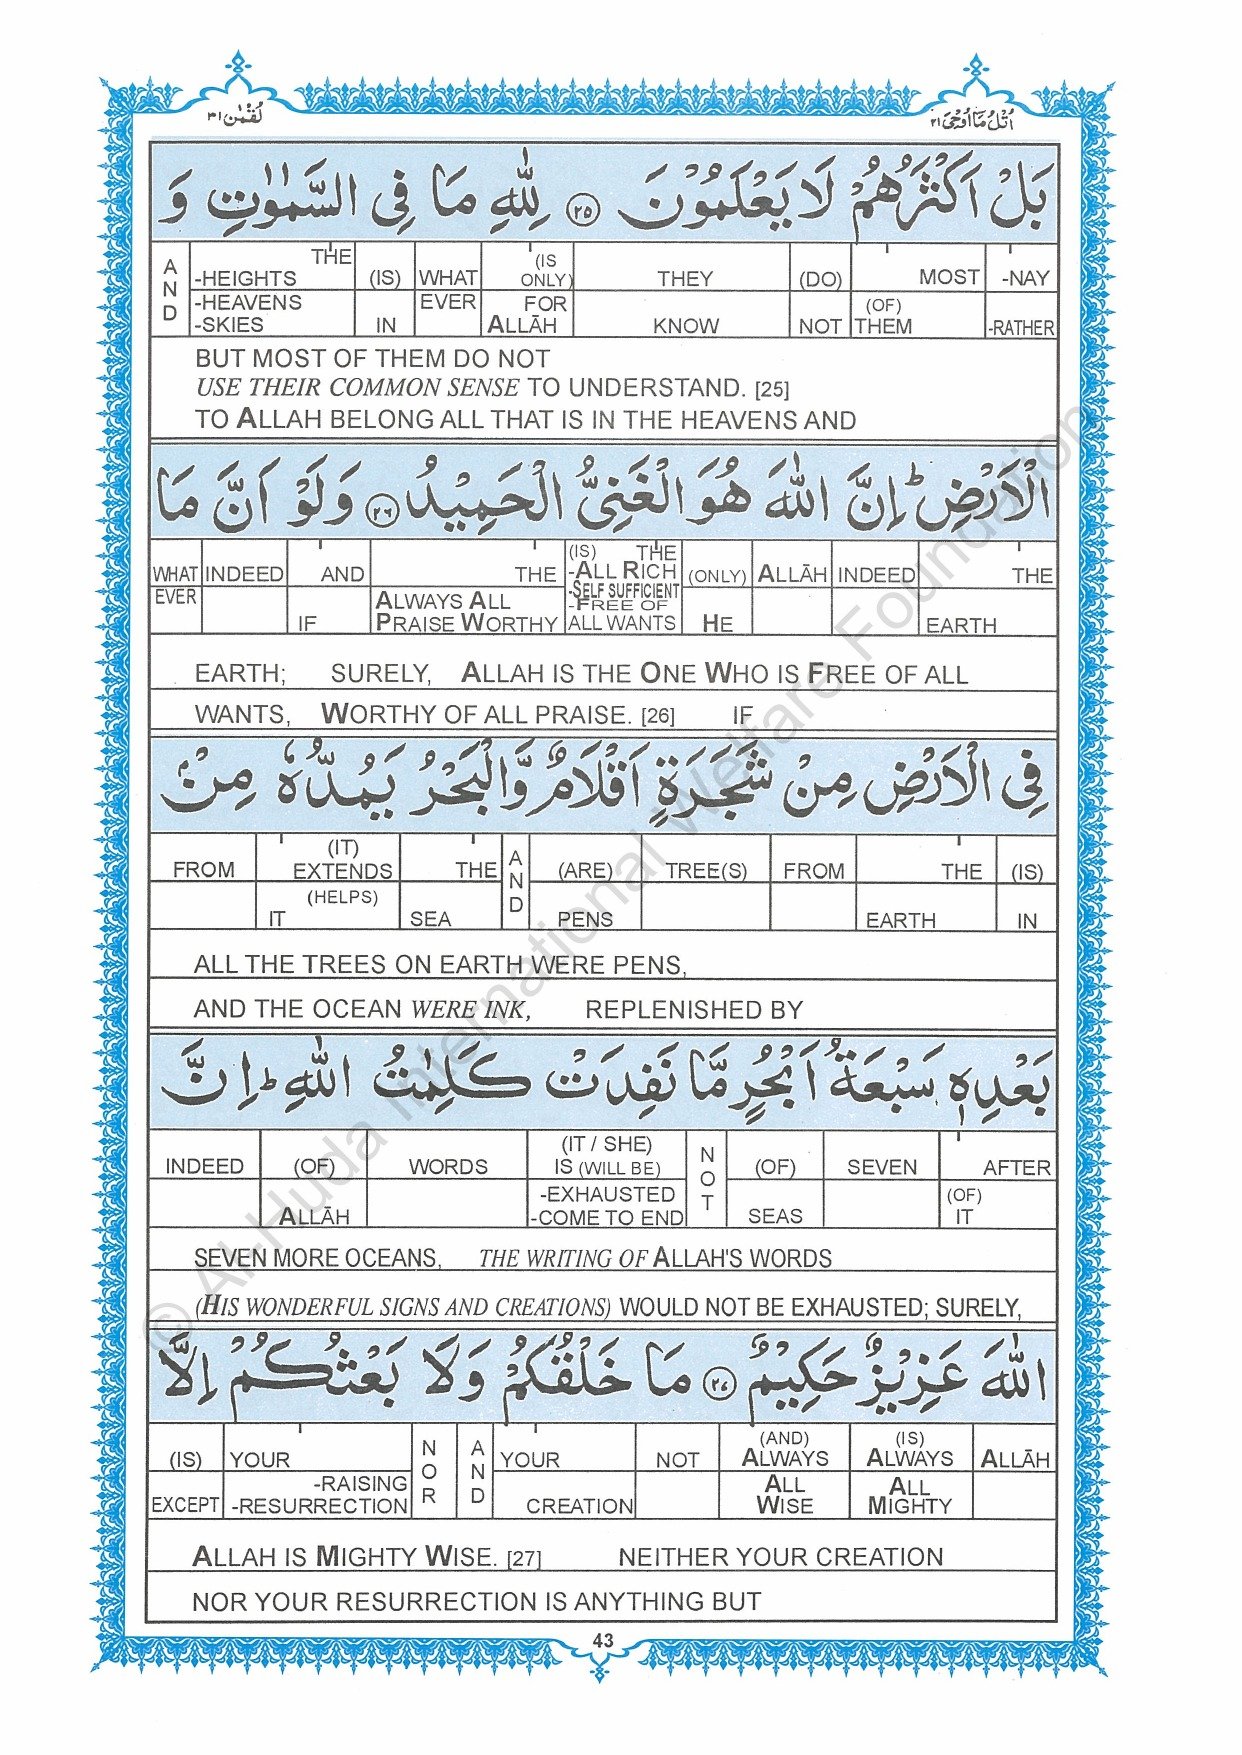 اُتْلُ مَاۤ اُوْحِیَ ٢١
لُقْمٰن ٣١
بَلْ اَكْثَرُهُمْ لَا يَعْلَمُوْنَ ﴿٢٥﴾ لِلّٰهِ مَا فِى السَّمٰوٰتِ وَ
AND THE -HEIGHTS (IS) WHAT (IS ONLY) THEY (DO) MOST -NAY
-HEAVENS -SKIES IN EVER FOR ALLĀH KNOW NOT (OF) THEM -RATHER
BUT MOST OF THEM DO NOT
USE THEIR COMMON SENSE TO UNDERSTAND. [25]
TO ALLAH BELONG ALL THAT IS IN THE HEAVENS AND
الْاَرْضِ ؕ اِنَّ اللّٰهَ هُوَ الْغَنِىُّ الْحَمِيْدُ ﴿٢٦﴾ وَلَوْ اَنَّ مَا
WHAT INDEED AND THE (IS) THE -ALL RICH (ONLY) ALLĀH INDEED THE
EVER IF ALWAYS ALL PRAISE WORTHY -SELF SUFFICIENT -FREE OF ALL WANTS HE EARTH
EARTH; SURELY, ALLAH IS THE ONE WHO IS FREE OF ALL
WANTS, WORTHY OF ALL PRAISE. [26] IF
فِى الْاَرْضِ مِنْ شَجَرَةٍ اَقْلَامٌ وَّالْبَحْرُ يَمُدُّهٗ مِنْۢ
FROM (IT) EXTENDS THE AND (ARE) TREE(S) FROM THE (IS)
(HELPS) IT SEA PENS EARTH IN
ALL THE TREES ON EARTH WERE PENS,
AND THE OCEAN WERE INK, REPLENISHED BY
بَعْدِهٖ سَبْعَةُ اَبْحُرٍ مَّا نَفِدَتْ كَلِمٰتُ اللّٰهِ ؕ اِنَّ
INDEED (OF) WORDS (IT / SHE) IS (WILL BE) NOT (OF) SEVEN AFTER
ALLĀH -EXHAUSTED -COME TO END SEAS (OF) IT
SEVEN MORE OCEANS, THE WRITING OF ALLAH'S WORDS
(HIS WONDERFUL SIGNS AND CREATIONS) WOULD NOT BE EXHAUSTED; SURELY,
اللّٰهَ عَزِيْزٌ حَكِيْمٌ ﴿٢٧﴾ مَا خَلْقُكُمْ وَلَا بَعْثُكُمْ اِلَّا
(IS) YOUR NOR AND YOUR NOT (AND) ALWAYS (IS) ALWAYS ALLĀH
EXCEPT -RAISING -RESURRECTION CREATION ALL WISE ALL MIGHTY
ALLAH IS MIGHTY WISE. [27] NEITHER YOUR CREATION
NOR YOUR RESURRECTION IS ANYTHING BUT
43
© Al-Huda International Welfare Foundation